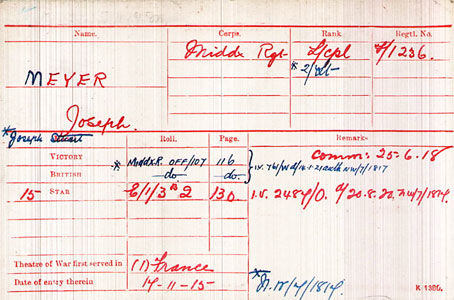 Name. Corps. Rank Regtl. No.
Middx Rgt L/cpl F/1236.
* 2/Lt
MEYER
Joseph.
* Joseph Stuart
Roll. Page. Remarks
VICTORY * Midd'x R. OFF/107 116 Comm: 25-6-18
BRITISH do do. I.V.
15 STAR E/1/3 B 2 130. I.V. 2484/0. d/20.8.20. NW/7/1817.
Theatre of War first served in (1) France
Date of entry therein 17-11-15
* N.W/7/1817.
K 1380.